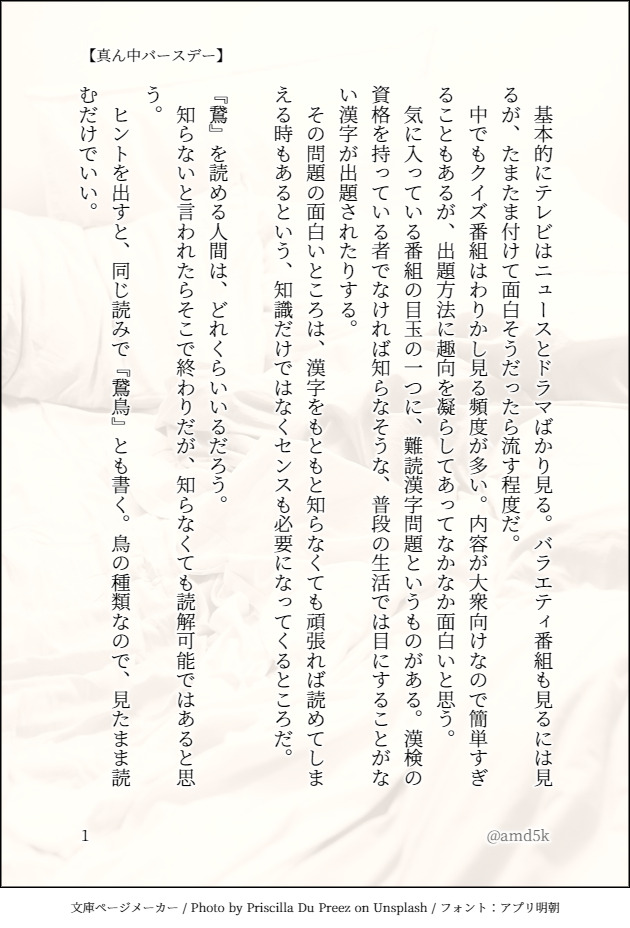 【真ん中バースデー】
基本的にテレビはニュースとドラマばかり見る。バラエティ番組も見るには見
るが、たまたま付けて面白そうだったら流す程度だ。
中でもクイズ番組はわりかし見る頻度が多い。内容が大衆向けなので簡単すぎ
ることもあるが、出題方法に趣向を凝らしてあってなかなか面白いと思う。
気に入っている番組の目玉の一つに、難読漢字問題というものがある。漢検の
資格を持っている者でなければ知らなそうな、普段の生活では目にすることがな
い漢字が出題されたりする。
その問題の面白いところは、漢字をもともと知らなくても頑張れば読めてしま
える時もあるという、知識だけではなくセンスも必要になってくるところだ。
『鵞』を読める人間は、どれくらいいるだろう。
知らないと言われたらそこで終わりだが、知らなくても読解可能ではあると思
う。
ヒントを出すと、同じ読みで『鵞鳥』とも書く。鳥の種類なので、見たまま読
むだけでいい。
1
@amd5k
文庫ページメーカー / Photo by Priscilla Du Preez on Unsplash / フォント：アプリ明朝